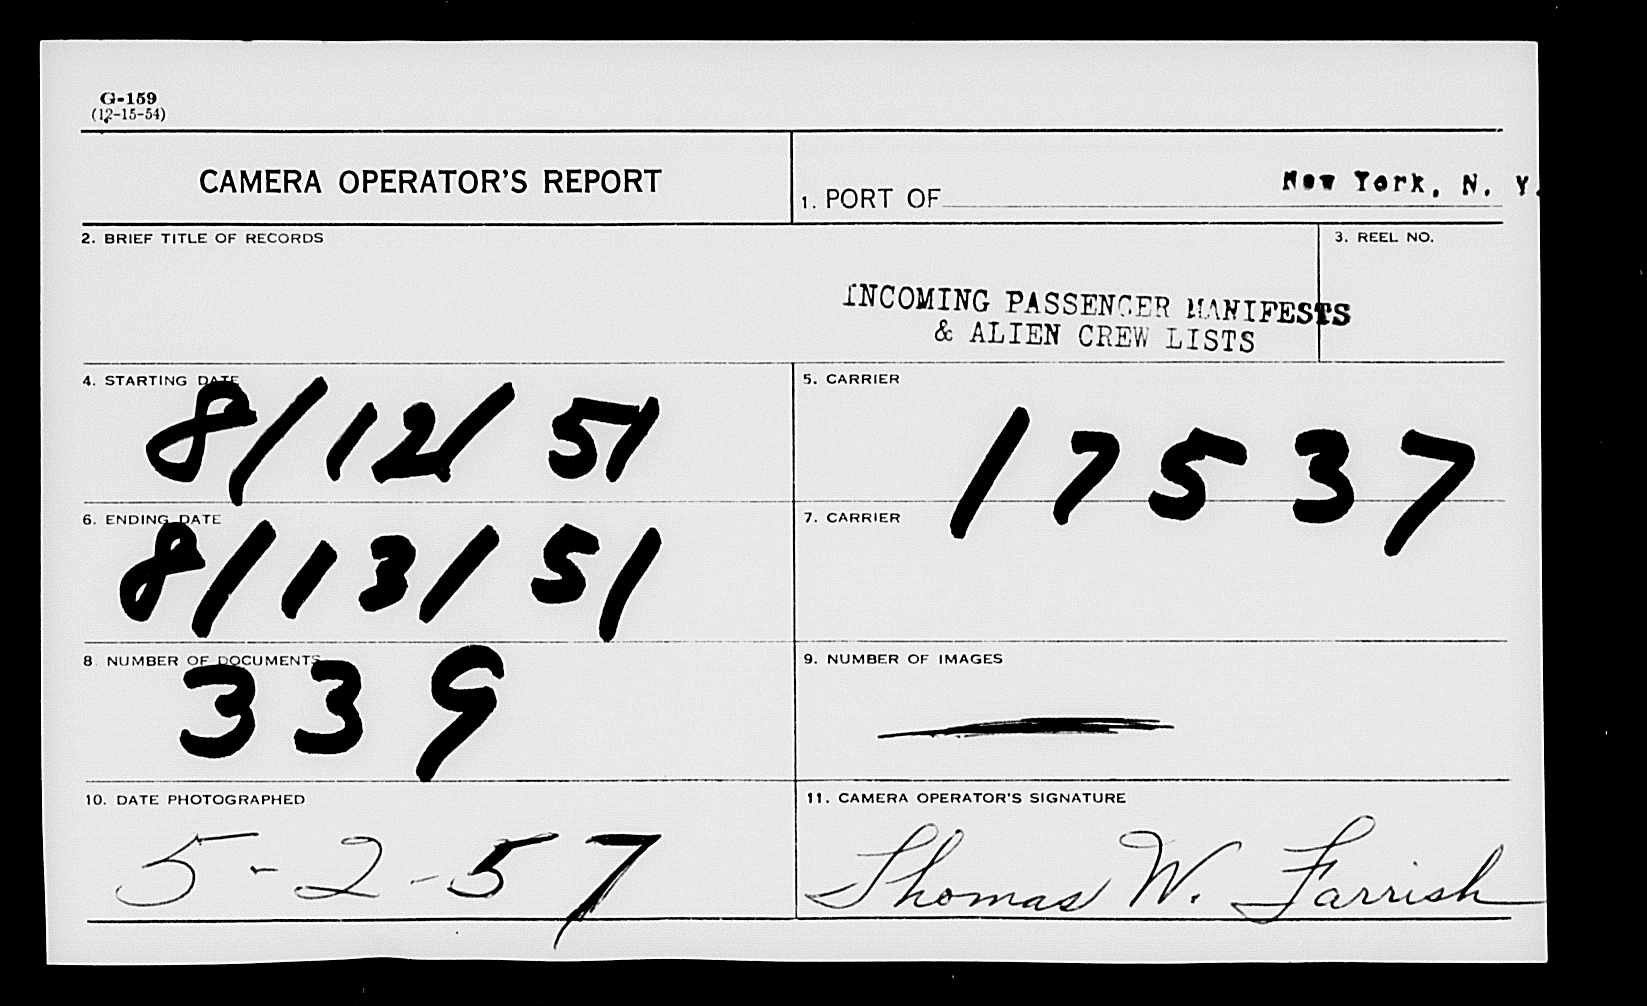 G-159
(12-15-54)
CAMERA OPERATOR'S REPORT
1. PORT OF New York, N. Y.
2. BRIEF TITLE OF RECORDS
INCOMING PASSENGER MANIFESTS
& ALIEN CREW LISTS
3. REEL NO.
4. STARTING DATE
8/12/51
5. CARRIER
17537
6. ENDING DATE
8/13/51
7. CARRIER
8. NUMBER OF DOCUMENTS
339
9. NUMBER OF IMAGES
10. DATE PHOTOGRAPHED
5-2-57
11. CAMERA OPERATOR'S SIGNATURE
Thomas W. Farrish